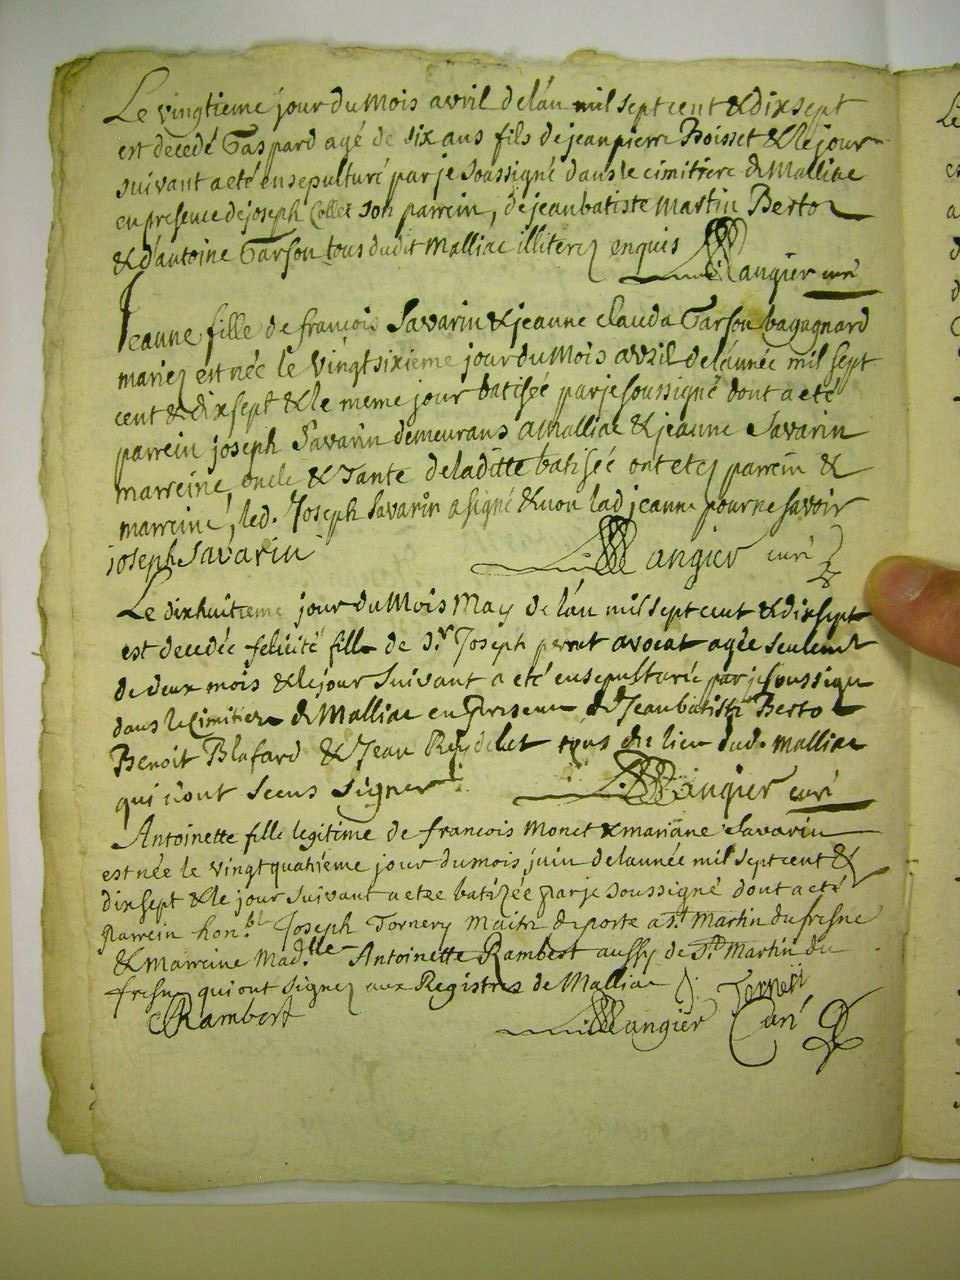 Le vingtieme jour du mois avril de lán mil sept cent & dix sept
est decedé Gaspard agé de six ans fils de jean pierre Boisset & le jour
suivant a eté ensepulturé par je soassigné dans le cimitiere de Malliac
en presence de joseph Collet son parrein, de jean batiste Martin Berto
& d'antoine Garson tous dudit Malliac illiterez enquis
Mangier curé
Jeanne fille de francois Savarin & jeanne clauda Garson bagagnard
mariez est née le vingt sixieme jour du Mois avril de lánnée mil sept
cent & dix sept & le meme jour batisée par je soussigné dont a eté
parrein joseph Savarin demeurans a Malliac & jeanne Savarin
marreine, oncle & Tante de laditte batisée ont etez parrein &
marreine, led. Joseph Savarin a signé & non lad jeanne pour ne savoir
joseph Savarin Mangier curé
Le dixhuitieme jour du Mois May de lán mil sept cent & dixsept
est decedée felicité fille de Sr Joseph perret avocat agée seulemt
de deux mois & le jour suivant a eté ensepulturée par je soussigné
dans le Cimitiere de Malliac en presence de Jean batiste Berto
Benoit Blafard & Jean Reydelet tous du lieu dud. Malliac
qui n'ont sceus signer Mangier curé
Antoinette fille legitime de francois Monet & mariane Savarin
est née le vingt quatrieme jour du mois juin de lannée mil sept cent &
dix sept & le jour suivant a etee batizée par je soussigné dont a eté
parrein hon.ble Joseph Tornery Maitre de poste a St Martin du fresne
& marreine Mad.lle Antoinette Rambert aussy de St Martin du
fresne qui ont signez aux Registres de Malliac J. Terneri
Rambert Mangier Curé